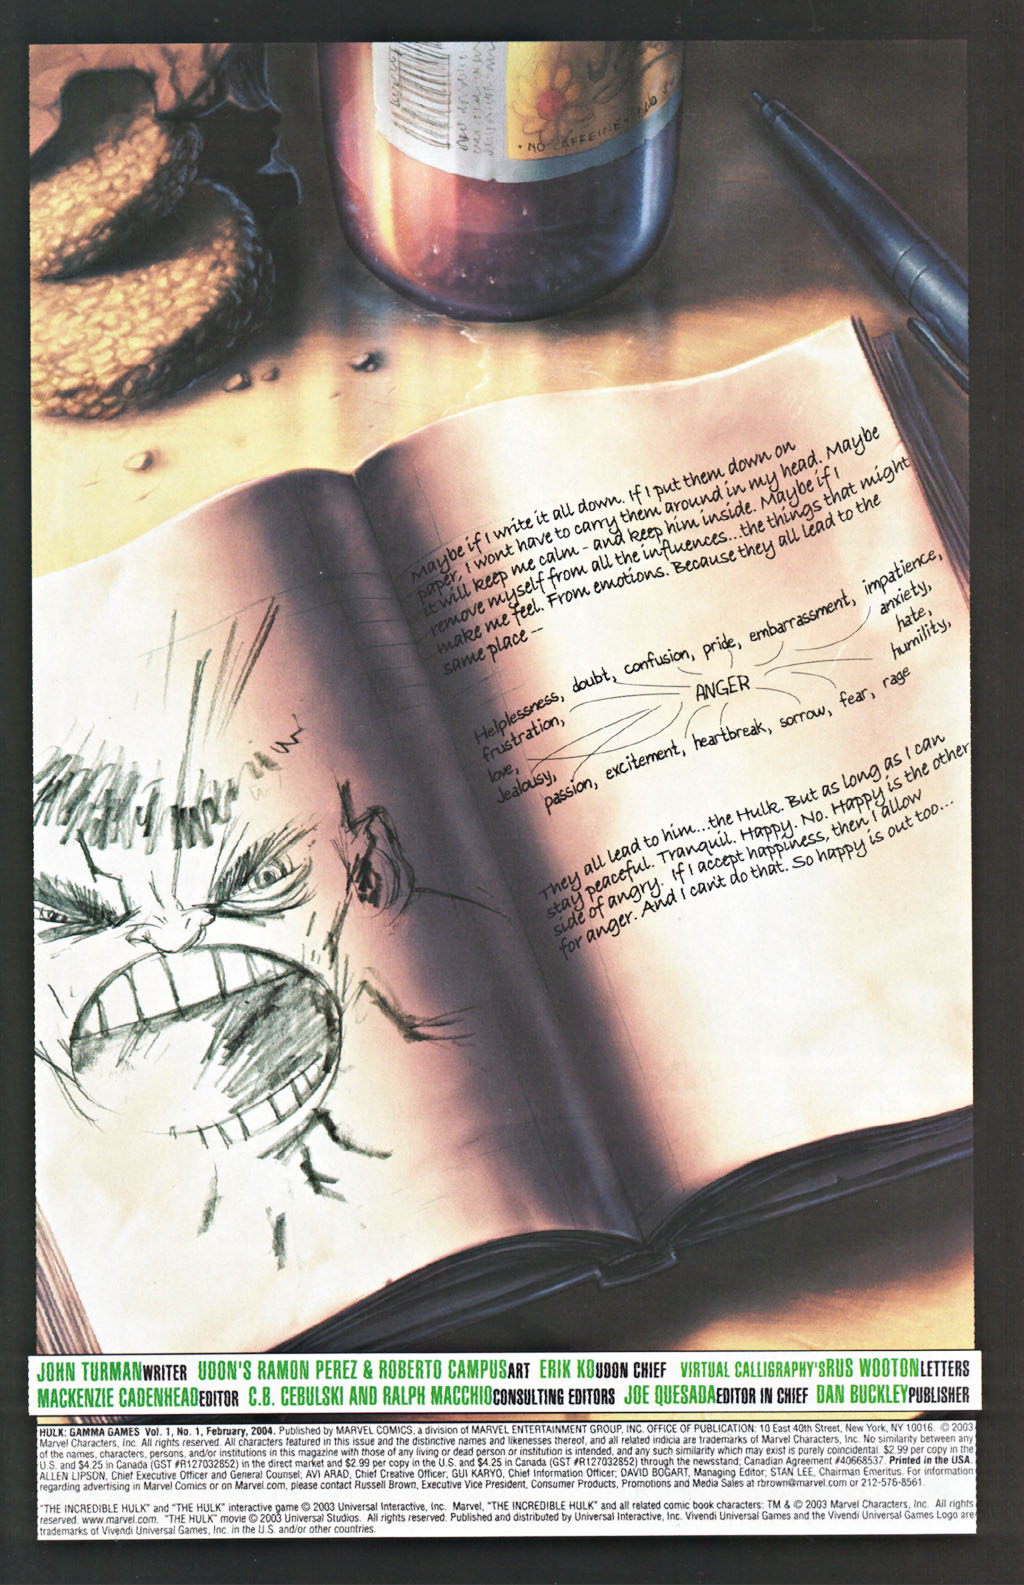 • NO CAFFEINE •
Maybe if I write it all down. If I put them down on
paper, I wont have to carry them around in my head. Maybe
it will keep me calm - and keep him inside. Maybe if I
remove myself from all the influences...the things that might
make me feel. From emotions. Because they all lead to the
same place --
Helplessness, doubt, confusion, pride, embarrassment, impatience,
frustration, anxiety,
love, ANGER hate,
Jealousy, humility,
passion, excitement, heartbreak, sorrow, fear, rage
They all lead to him...the Hulk. But as long as I can
stay peaceful. Tranquil. Happy. No. Happy is the other
side of angry. If I accept happiness, then I allow
for anger. And I can't do that. So happy is out too...
JOHN TURMAN WRITER UDON'S RAMON PEREZ & ROBERTO CAMPUS ART ERIK KO UDON CHIEF VIRTUAL CALLIGRAPHY'S RUS WOOTON LETTERS
MACKENZIE CADENHEAD EDITOR C.B. CEBULSKI AND RALPH MACCHIO CONSULTING EDITORS JOE QUESADA EDITOR IN CHIEF DAN BUCKLEY PUBLISHER
HULK: GAMMA GAMES Vol. 1, No. 1, February, 2004. Published by MARVEL COMICS, a division of MARVEL ENTERTAINMENT GROUP, INC. OFFICE OF PUBLICATION: 10 East 40th Street, New York, NY 10016. © 2003
Marvel Characters, Inc. All rights reserved. All characters featured in this issue and the distinctive names and likenesses thereof, and all related indicia are trademarks of Marvel Characters, Inc. No similarity between any
of the names, characters, persons, and/or institutions in this magazine with those of any living or dead person or institution is intended, and any such similarity which may exist is purely coincidental. $2.99 per copy in the
U.S. and $4.25 in Canada (GST #R127032852) in the direct market and $2.99 per copy in the U.S. and $4.25 in Canada (GST #R127032852) through the newsstand; Canadian Agreement #40668537. Printed in the USA.
ALLEN LIPSON, Chief Executive Officer and General Counsel; AVI ARAD, Chief Creative Officer; GUI KARYO, Chief Information Officer; DAVID BOGART, Managing Editor; STAN LEE, Chairman Emeritus. For information
regarding advertising in Marvel Comics or on Marvel.com, please contact Russell Brown, Executive Vice President, Consumer Products, Promotions and Media Sales at rbrown@marvel.com or 212-576-8561.
"THE INCREDIBLE HULK" and "THE HULK" interactive game © 2003 Universal Interactive, Inc. Marvel, "THE INCREDIBLE HULK" and all related comic book characters: TM & © 2003 Marvel Characters, Inc. All rights
reserved. www.marvel.com. "THE HULK" movie © 2003 Universal Studios. All rights reserved. Published and distributed by Universal Interactive, Inc. Vivendi Universal Games and the Vivendi Universal Games Logo are
trademarks of Vivendi Universal Games, Inc. in the U.S. and/or other countries.